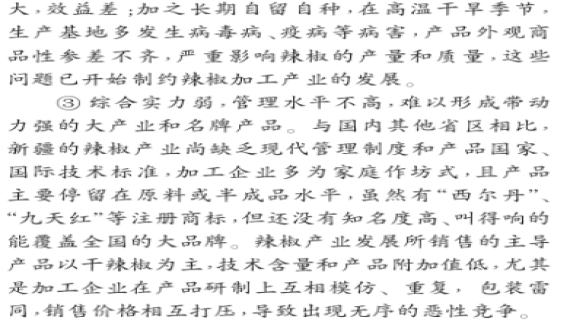 大,效益差;加之长期自留自种,在高温干旱季节,
生产基地多发生病毒病、疫病等病害,产品外观商
品性参差不齐,严重影响辣椒的产量和质量,这些
问题已开始制约辣椒加工产业的发展。
③ 综合实力弱,管理水平不高,难以形成带动
力强的大产业和名牌产品。与国内其他省区相比,
新疆的辣椒产业尚缺乏现代管理制度和产品国家、
国际技术标准,加工企业多为家庭作坊式,且产品
主要停留在原料或半成品水平,虽然有“西尔丹”、
“九天红”等注册商标,但还没有知名度高、叫得响的
能覆盖全国的大品牌。辣椒产业发展所销售的主导
产品以干辣椒为主,技术含量和产品附加值低,尤其
是加工企业在产品研制上互相模仿、重复,包装雷
同,销售价格相互打压,导致出现无序的恶性竞争。